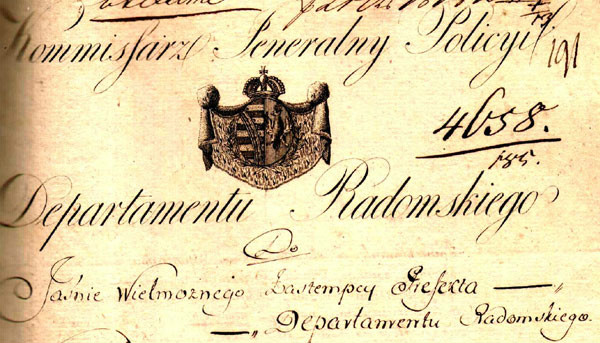 Kommissarz Jeneralny Policyi
191
4658.
185.
Departamentu Radomskiego
Do
Jaśnie Wielmożnego Zastempcy Prefekta —„
—„ Departamentu Radomskiego.